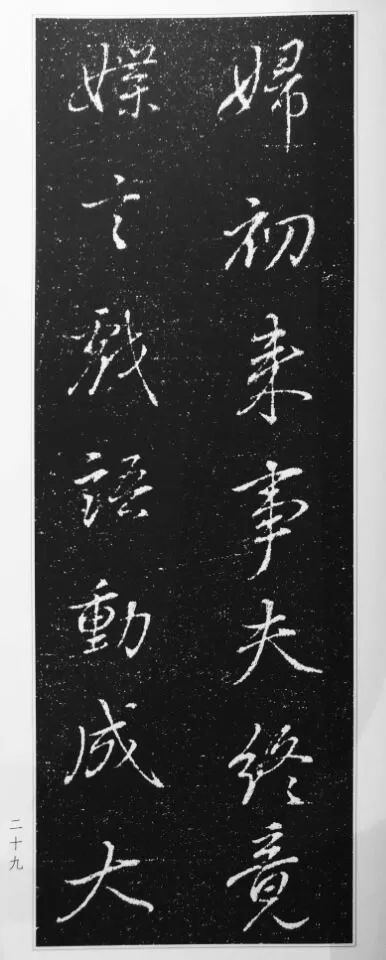 婦初來事夫終竟
媟言戲語動成大
二十九